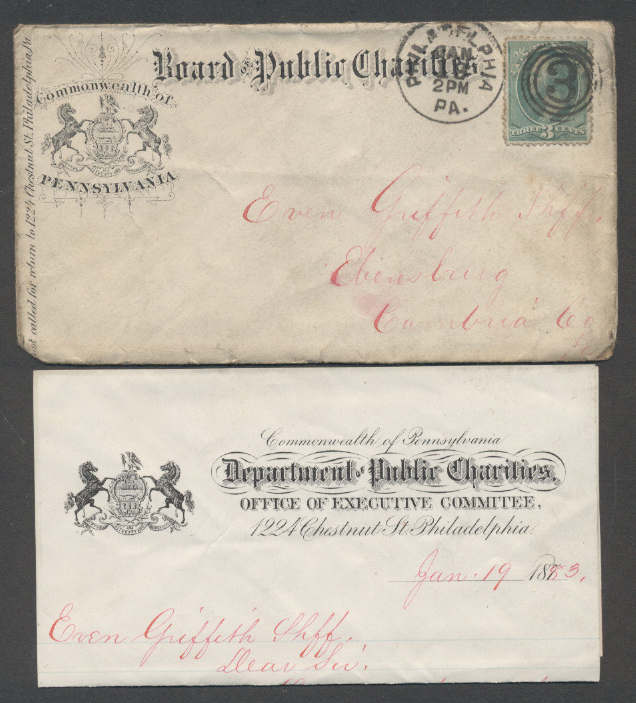 Board of Public Charities,
Commonwealth of
PENNSYLVANIA
not called for return to 1224 Chestnut St. Philadelphia, Pa.
PHILADELPHIA
JAN
2PM
PA.
3
THREE 3 CENTS
Even Griffith Shff.
Ebensburg
Cambria Co
Commonwealth of Pennsylvania
Department of Public Charities,
OFFICE OF EXECUTIVE COMMITTEE,
1224 Chestnut St. Philadelphia.
Jan. 19 1883.
Even Griffith Shff.
Dear Sir.